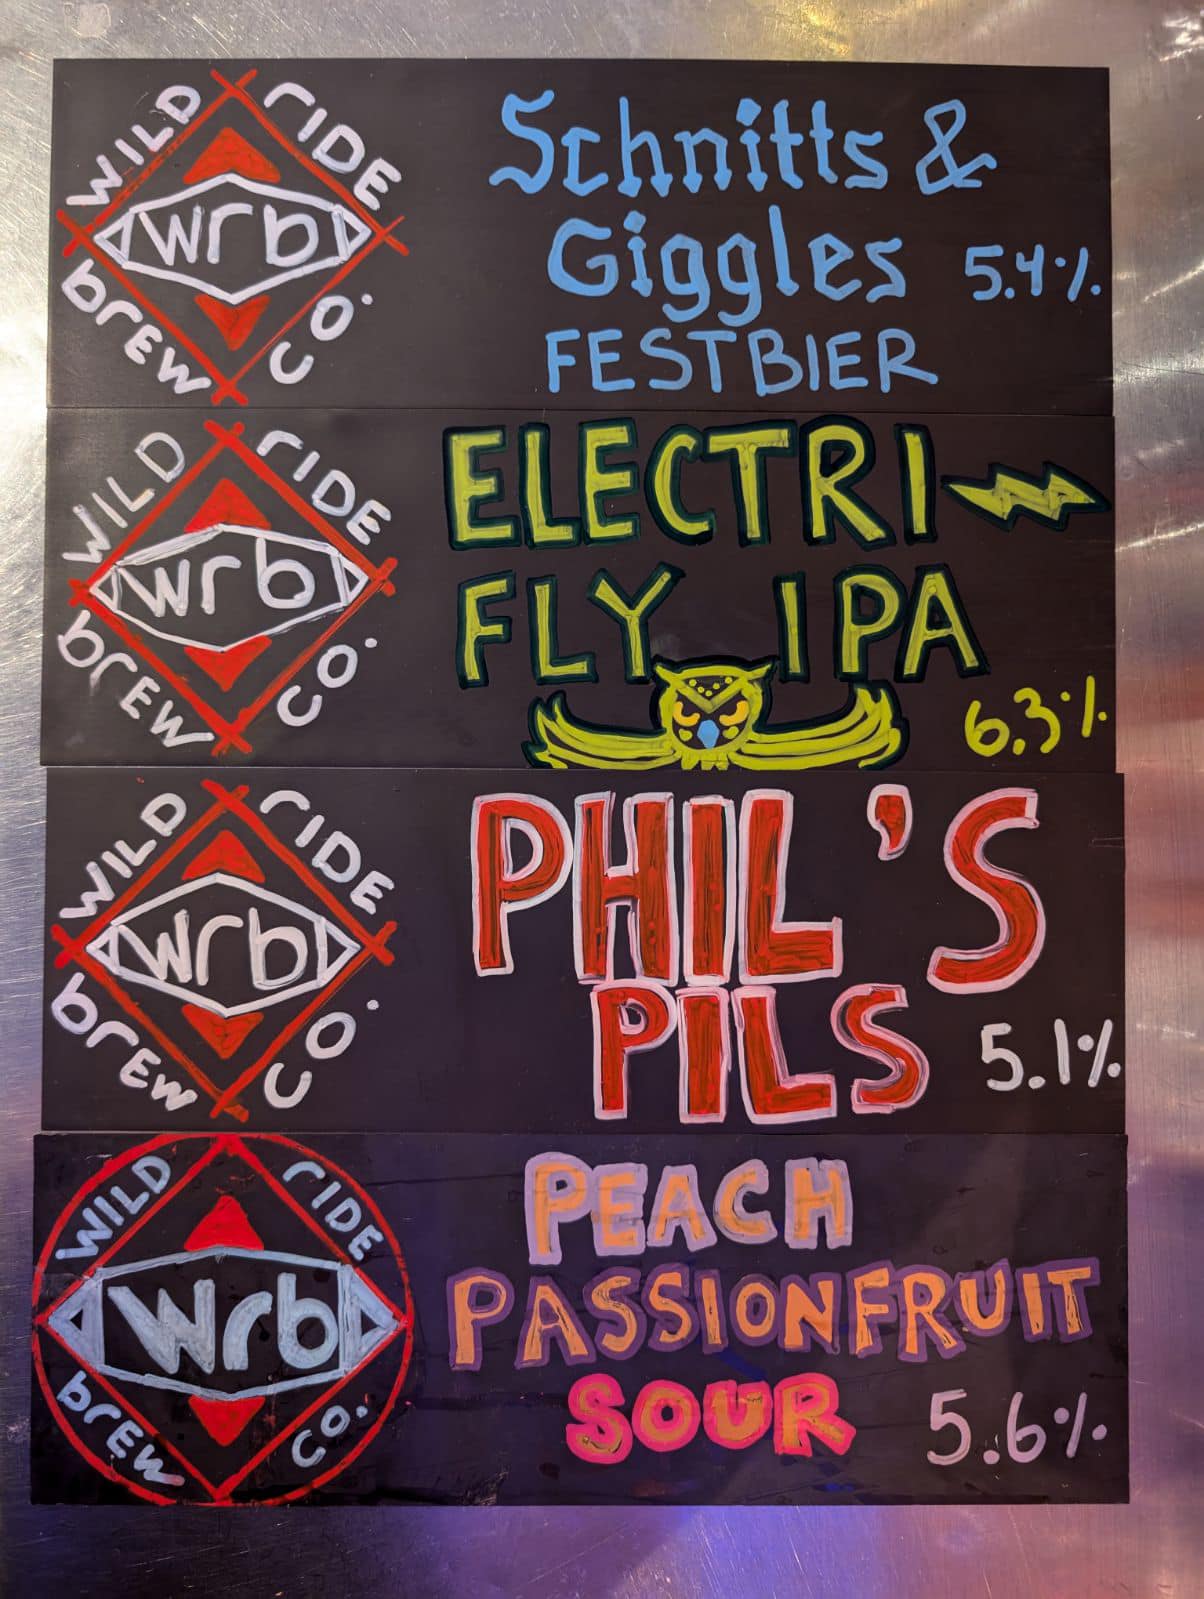 WILD RIDE
wrb
brEW CO.
Schnitts &
Giggles 5.4%
FESTBIER
WILD RIDE
wrb
brEW CO.
ELECTRI
FLY IPA
6.3%
WILD RIDE
wrb
brEW CO.
PHIL'S
PILS 5.1%
WILD RIDE
wrb
brEW CO.
PEACH
PASSIONFRUIT
SOUR 5.6%